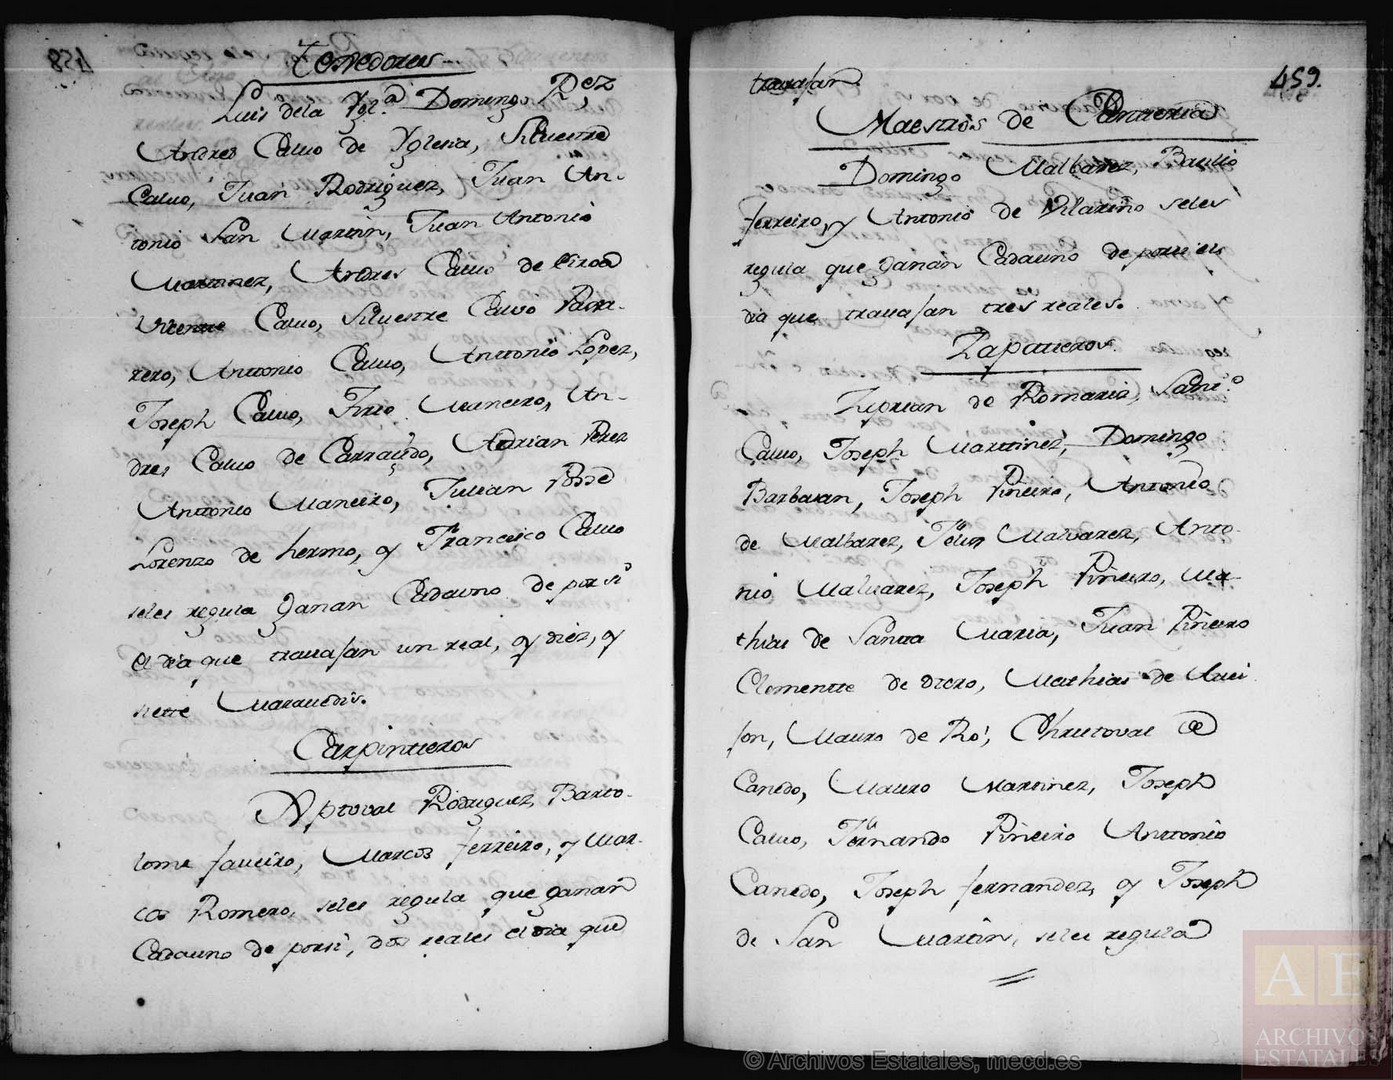 458
Texedores
Luis dela Ygl.ª Domingo Rez
Andres Calvo de Yglesia, Siluestre
Caluo, Juan Rodriguez, Juan An-
tonio San Martin, Juan Antonio
Martinez, Andres Caluo de
Vicente Caluo, Siluestre Caluo Parra-
rero, Antonio Caluo, Anttonio Lopez,
Joseph Caluo, Maneiro, An-
dres Caluo de Carracedo, Adrian Perez
Antonio Maneiro, Julian Posse
Lorenzo de hermo, y Francisco Caluo
seles regula ganan Cadauno de por si
el dia que trauajan un real, y diez, y
siette Marauedis.
Carpinteros
Xptoval Rodriguez, Barto-
lome faueiro, Marcos ferreiro, y Mar-
cos Romero, seles regula que ganan
Cadauno de porsi, dos reales el dia que
trauajan.
459.
Maestros de Cantteria
Domingo Malbarez, Basilio
ferreiro, y Antonio de Vilariño seles
regula que ganan Cadauno de porsi el
dia que trauajan tres reales.
Zapatteros
Ziprian de Romariz, Santi.º
Caluo, Joseph Marttinez, Domingo
Barbaran, Joseph Piñeiro, Antonio
de Malbarez, Felix Malvarez, Anto-
nio Maluarez, Joseph Piñeiro, Ma-
thias de Santta Maria, Juan Piñeiro
Clementte de Mathias de
Mauro de Ro, Christoual de
Canedo, Mauro Martinez, Joseph
Caluo, Fernando Piñeiro Anttonio
Canedo, Joseph fernandez, y Joseph
de San Martin, seles regula
© Archivos Estatales, mecd.es
AE
ARCHIVOS
ESTATALES